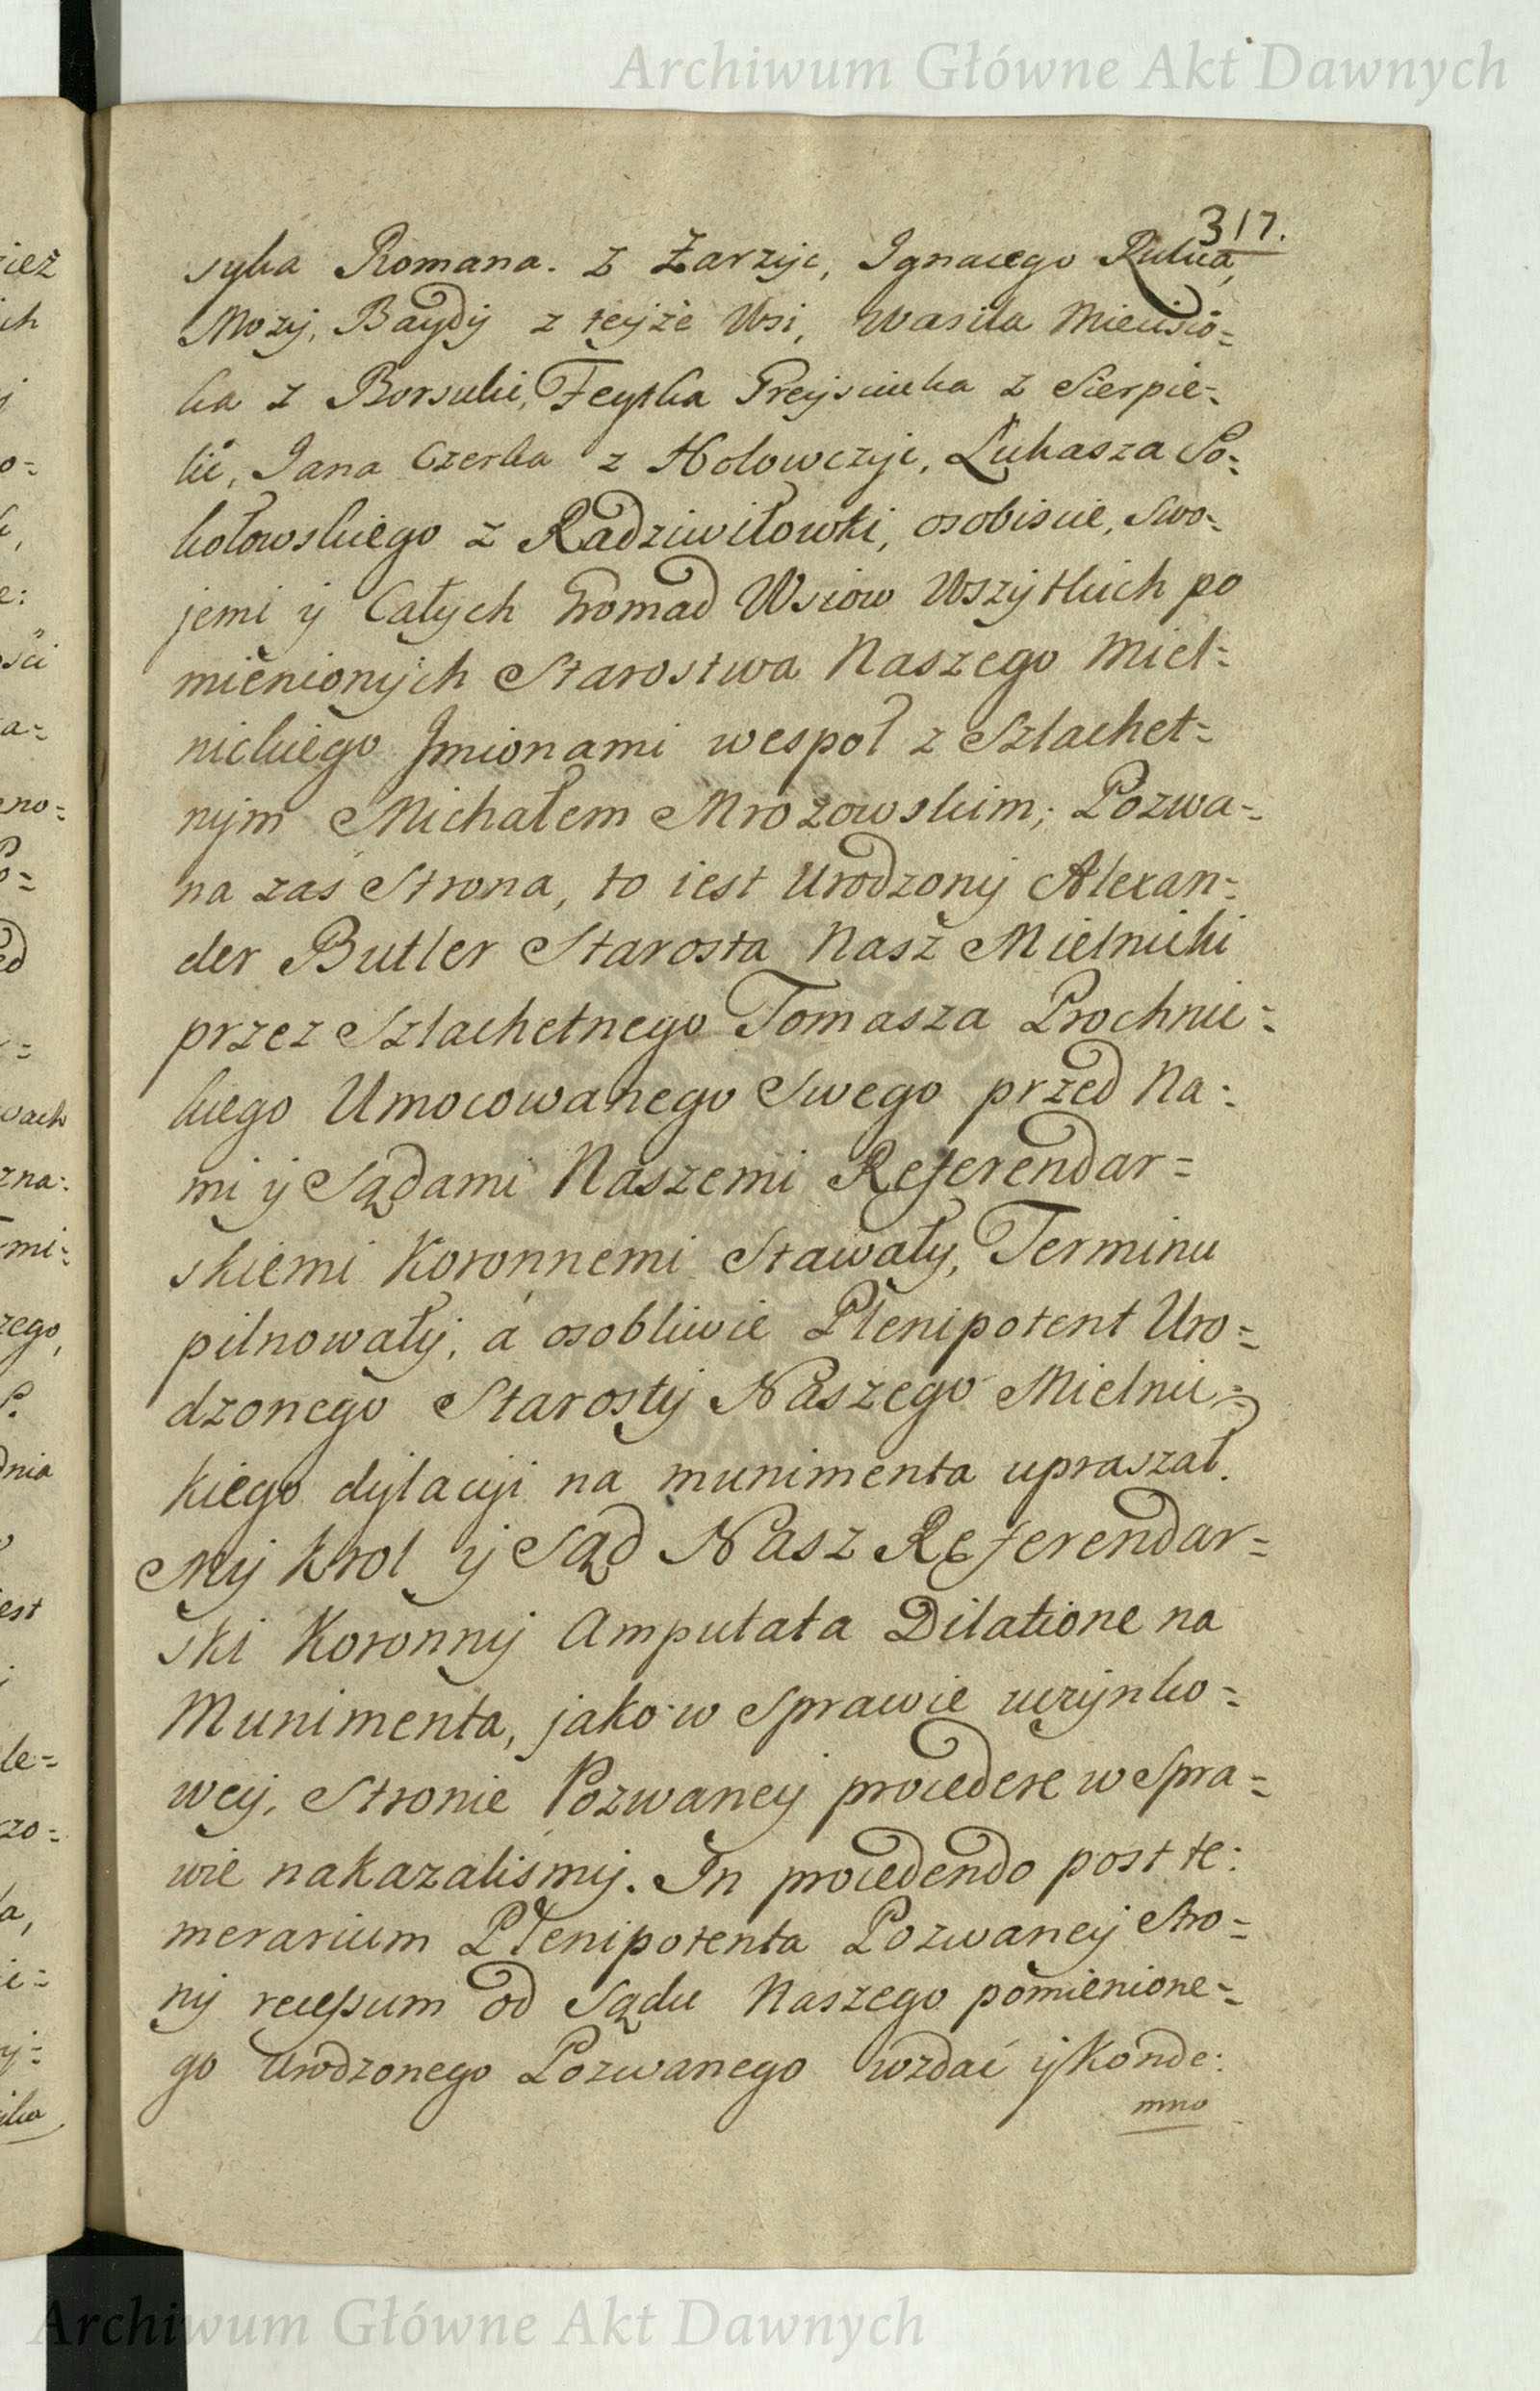 Archiwum Główne Akt Dawnych
317.
syka Romana. z Żarzyc, Ignacego Rulica,
Mozy, Baydy z teyże Wsi, Wasila Mieńsio=
ka z Borsuki, Feyska Greysiuka z Sierpie=
lic, Jana Czerka z Hołowczyc, Łukasza So=
kołowskiego z Radziwiłowki, osobiscie, swo=
jemi y Całych Gromad Wsiow Wszytkich po
mienionych Starostwa Naszego Miel=
nickiego Jmionami wespoł z Szlachet=
nym Michałem Mrozowskim; Pozwa=
na zaś Strona, to iest Urodzony Alexan=
der Butler Starosta Nasz Mielnicki
przez Szlachetnego Tomasza Prochnic=
kiego Umocowanego Swego przed Na=
mi y Sądami Naszemi Referendar=
skiemi Koronnemi Stawały, Terminu
pilnowały, á osobliwie Plenipotent Uro=
dzonego Starosty Naszego Mielnic=
kiego dylacyi na munimenta upraszał.
My Krol y Sąd Nasz Referendar=
ski Koronny Amputata Dilatione na
Munimenta, jako w Sprawie uczynko=
wey, Stronie Pozwaney procedere w Spra=
wie nakazaliśmy. In procedendo post te=
merarium Plenipotenta Pozwaney Stro=
ny recessum od Sądu Naszego pomienione=
go Urodzonego Pozwanego wzdać y Konde=
mno
Archiwum Główne Akt Dawnych